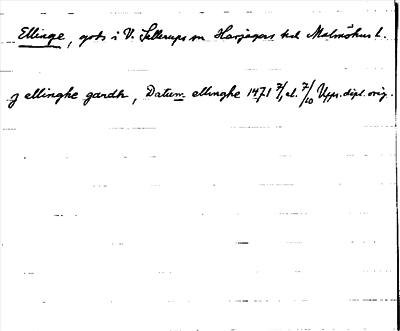 Ellinge, gods i V. Sallerups sn Harjagers hd Malmöhus l.
j ellinghe gardh, Datum ellinghe 1471 7/1 el. 7/10 Upps. dipl. orig.